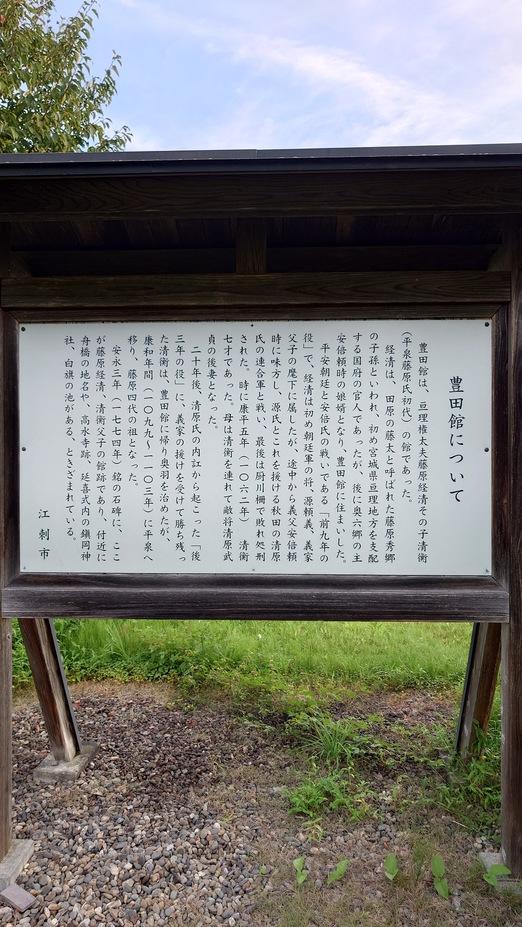 豊田館について
豊田館は、亘理権太夫藤原経清その子清衡
(平泉藤原氏初代)の館であった。
経清は、田原の藤太と呼ばれた藤原秀郷
の子孫といわれ、初め宮城県亘理地方を支配
する国府の官人であったが、後に奥六郷の主
安倍頼時の娘婿となり、豊田館に住まいした。
平安朝廷と安倍氏の戦いである「前九年の
役」で、経清は初め朝廷軍の将、源頼義、義家
父子の麾下に属したが、途中から義父安倍頼
時に味方し、源氏とこれを援ける秋田の清原
氏の連合軍と戦い、最後は厨川柵で敗れ処刑
された。時に康平五年(一〇六二年)清衡
七才であった。母は清衡を連れて敵将清原武
貞の後妻となった。
二十年後、清原氏の内訌から起こった「後
三年の役」に、義家の援けを受けて勝ち残っ
た清衡は、豊田館に帰り奥羽を治めたが、
康和年間(一〇九九~一一〇三年)に平泉へ
移り、藤原四代の祖となった。
安永三年(一七七四年)銘の石碑に、ここ
が藤原経清、清衡父子の館跡であり、付近に
舟橋の地名や、高水寺跡、延喜式内の鎮岡神
社、白旗の池がある、ときざまれている。
江刺市